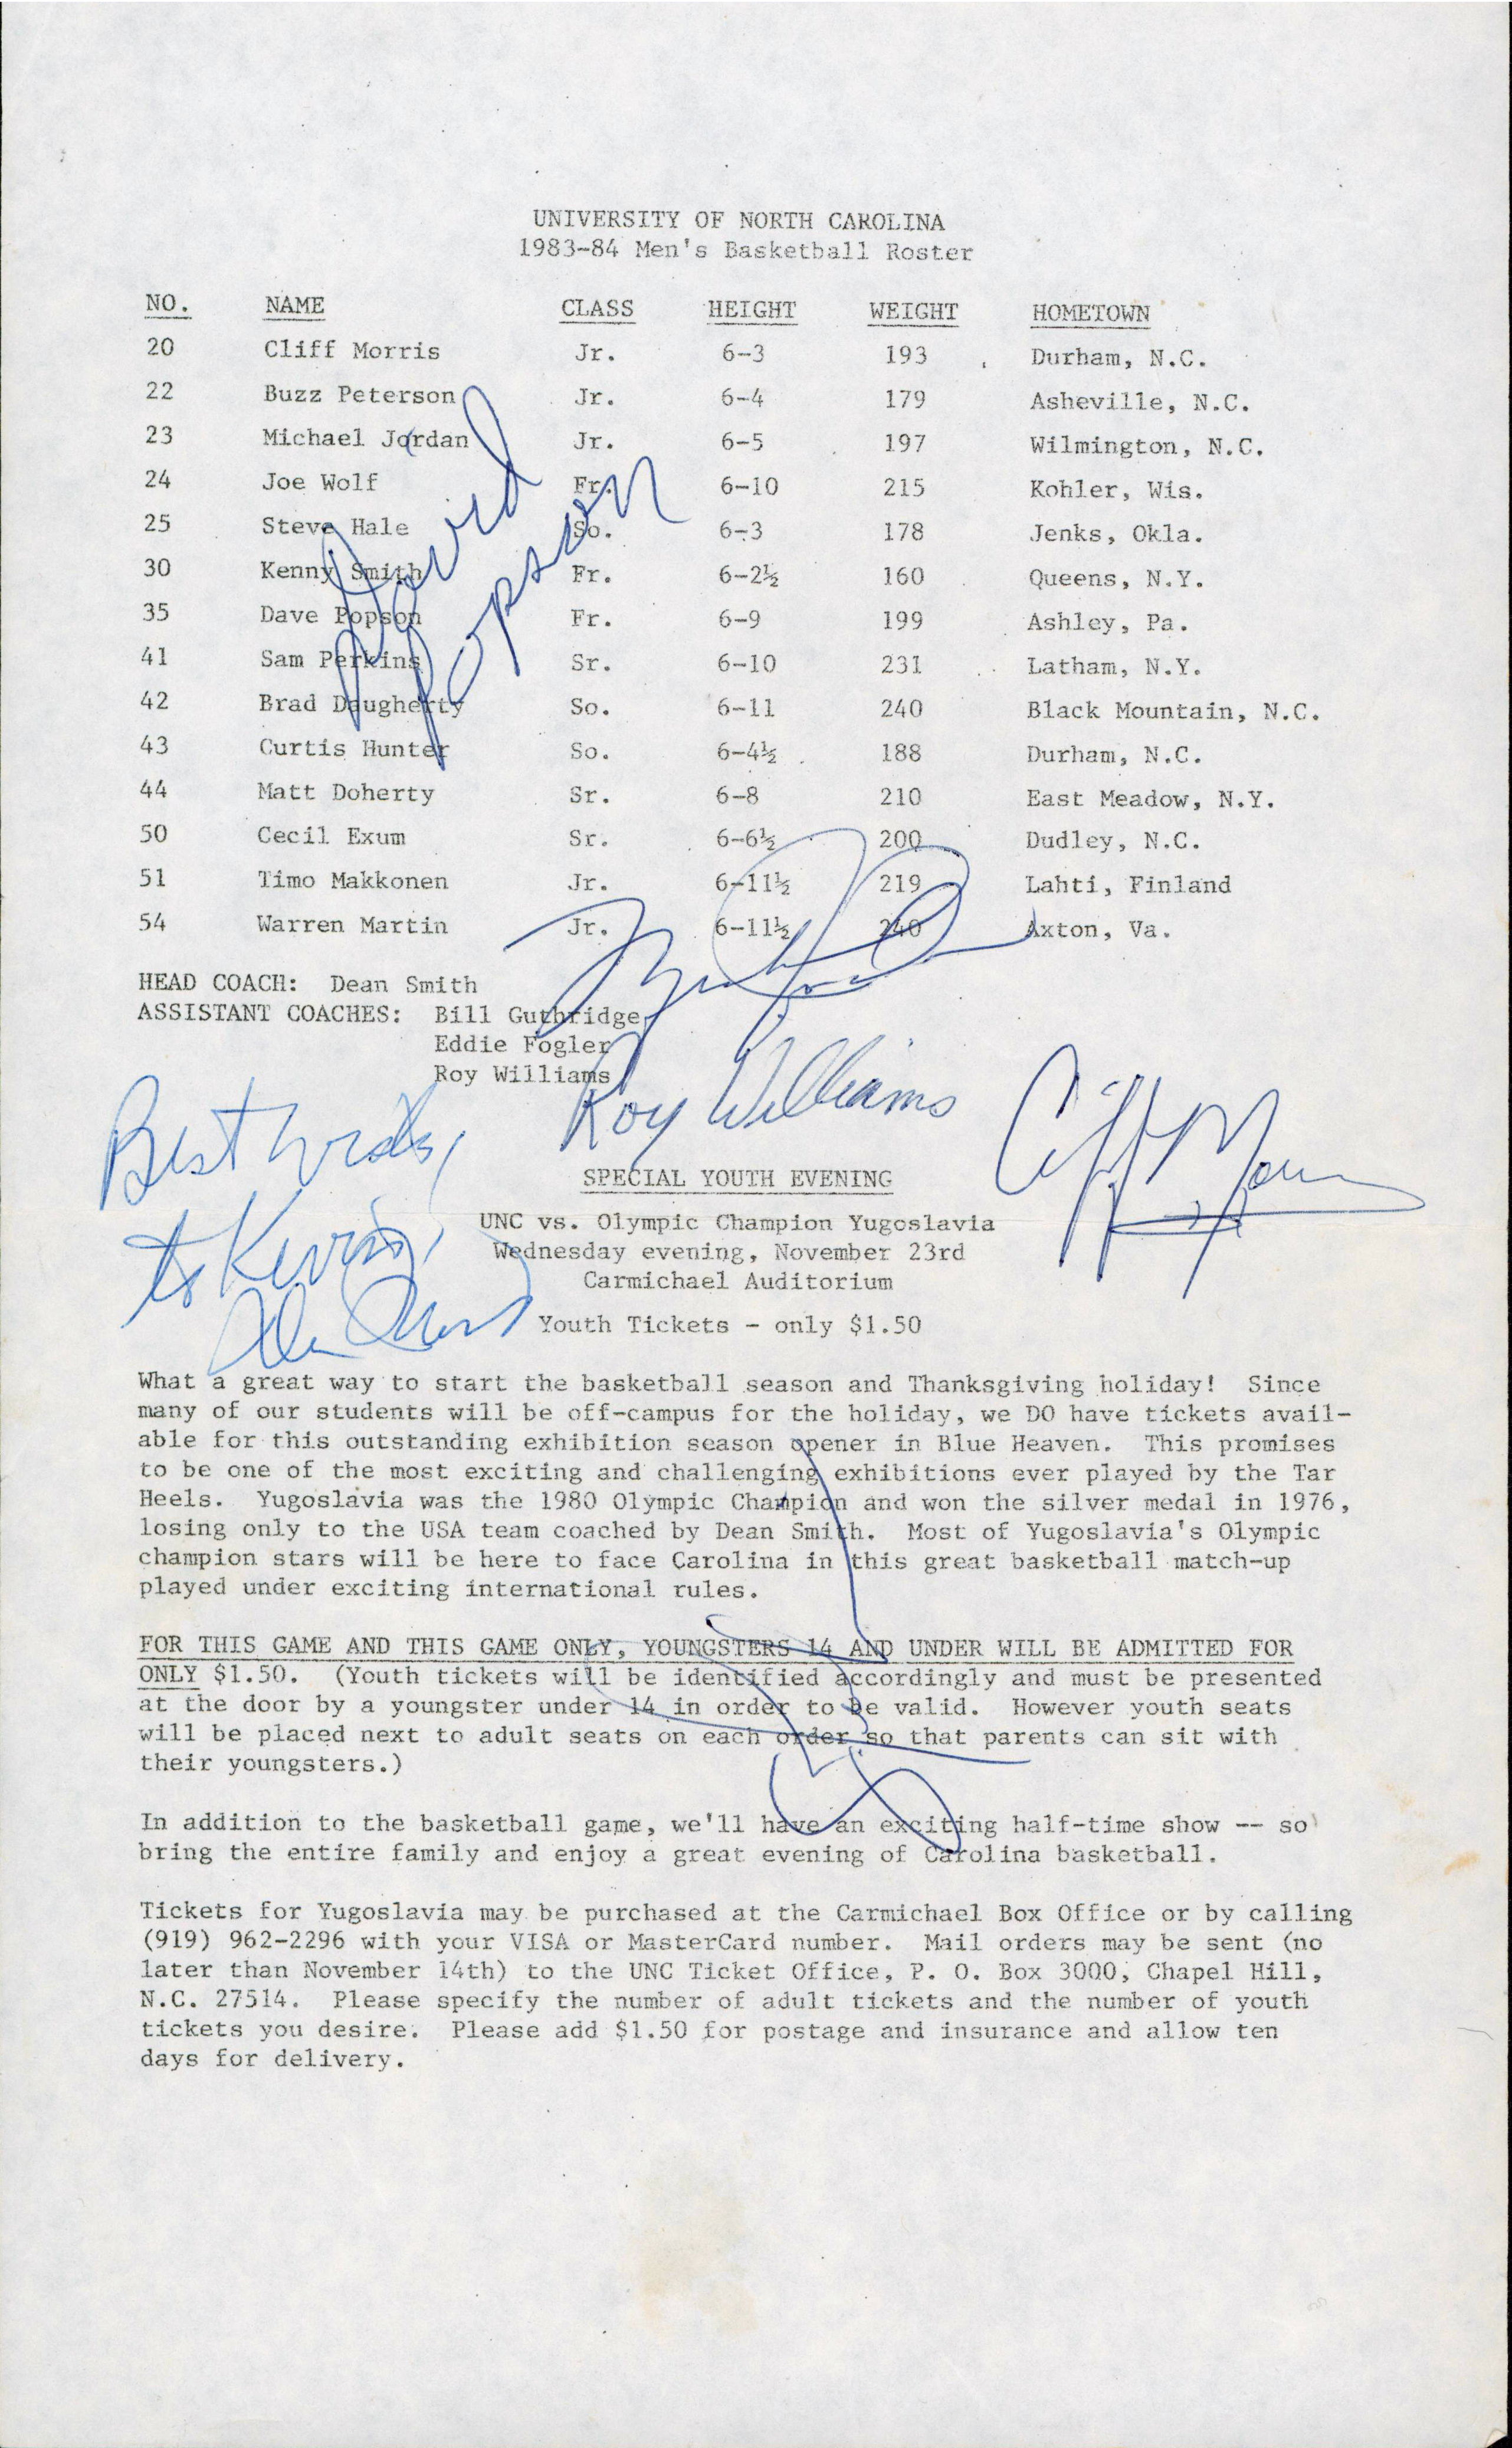 UNIVERSITY OF NORTH CAROLINA
1983-84 Men's Basketball Roster
NO. NAME CLASS HEIGHT WEIGHT HOMETOWN
20 Cliff Morris Jr. 6-3 193 Durham, N.C.
22 Buzz Peterson Jr. 6-4 179 Asheville, N.C.
23 Michael Jordan Jr. 6-5 197 Wilmington, N.C.
24 Joe Wolf Fr. 6-10 215 Kohler, Wis.
25 Steve Hale So. 6-3 178 Jenks, Okla.
30 Kenny Smith Fr. 6-2½ 160 Queens, N.Y.
35 Dave Popson Fr. 6-9 199 Ashley, Pa.
41 Sam Perkins Sr. 6-10 231 Latham, N.Y.
42 Brad Daugherty So. 6-11 240 Black Mountain, N.C.
43 Curtis Hunter So. 6-4½ 188 Durham, N.C.
44 Matt Doherty Sr. 6-8 210 East Meadow, N.Y.
50 Cecil Exum Sr. 6-6½ 200 Dudley, N.C.
51 Timo Makkonen Jr. 6-11½ 219 Lahti, Finland
54 Warren Martin Jr. 6-11½ 240 Axton, Va.
David
Popson
HEAD COACH: Dean Smith
ASSISTANT COACHES: Bill Guthridge
Eddie Fogler
Roy Williams
Roy Williams
Cliff Morris
Best wishes,
to Kevin,
SPECIAL YOUTH EVENING
UNC vs. Olympic Champion Yugoslavia
Wednesday evening, November 23rd
Carmichael Auditorium
Youth Tickets - only $1.50
What a great way to start the basketball season and Thanksgiving holiday! Since
many of our students will be off-campus for the holiday, we DO have tickets avail-
able for this outstanding exhibition season opener in Blue Heaven. This promises
to be one of the most exciting and challenging exhibitions ever played by the Tar
Heels. Yugoslavia was the 1980 Olympic Champion and won the silver medal in 1976,
losing only to the USA team coached by Dean Smith. Most of Yugoslavia's Olympic
champion stars will be here to face Carolina in this great basketball match-up
played under exciting international rules.
FOR THIS GAME AND THIS GAME ONLY, YOUNGSTERS 14 AND UNDER WILL BE ADMITTED FOR
ONLY $1.50. (Youth tickets will be identified accordingly and must be presented
at the door by a youngster under 14 in order to be valid. However youth seats
will be placed next to adult seats on each order so that parents can sit with
their youngsters.)
In addition to the basketball game, we'll have an exciting half-time show -- so
bring the entire family and enjoy a great evening of Carolina basketball.
Tickets for Yugoslavia may be purchased at the Carmichael Box Office or by calling
(919) 962-2296 with your VISA or MasterCard number. Mail orders may be sent (no
later than November 14th) to the UNC Ticket Office, P. O. Box 3000, Chapel Hill,
N.C. 27514. Please specify the number of adult tickets and the number of youth
tickets you desire. Please add $1.50 for postage and insurance and allow ten
days for delivery.